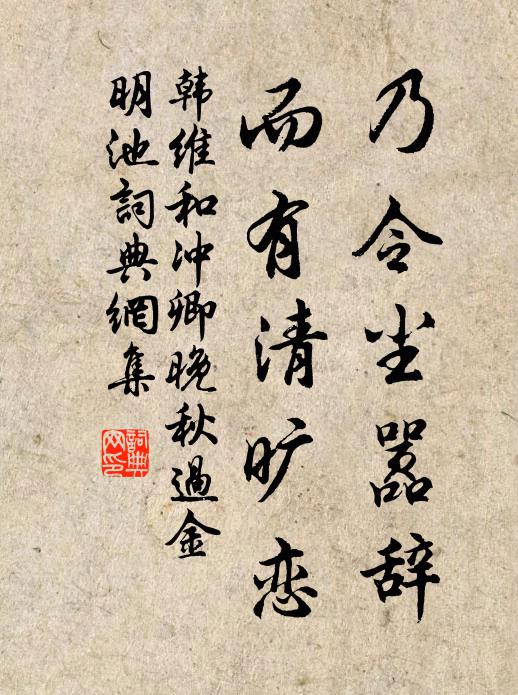 乃令尘嚣辞
而有清旷恋
韩维和冲卿晚秋過金
明池詞典網集
詞典网印